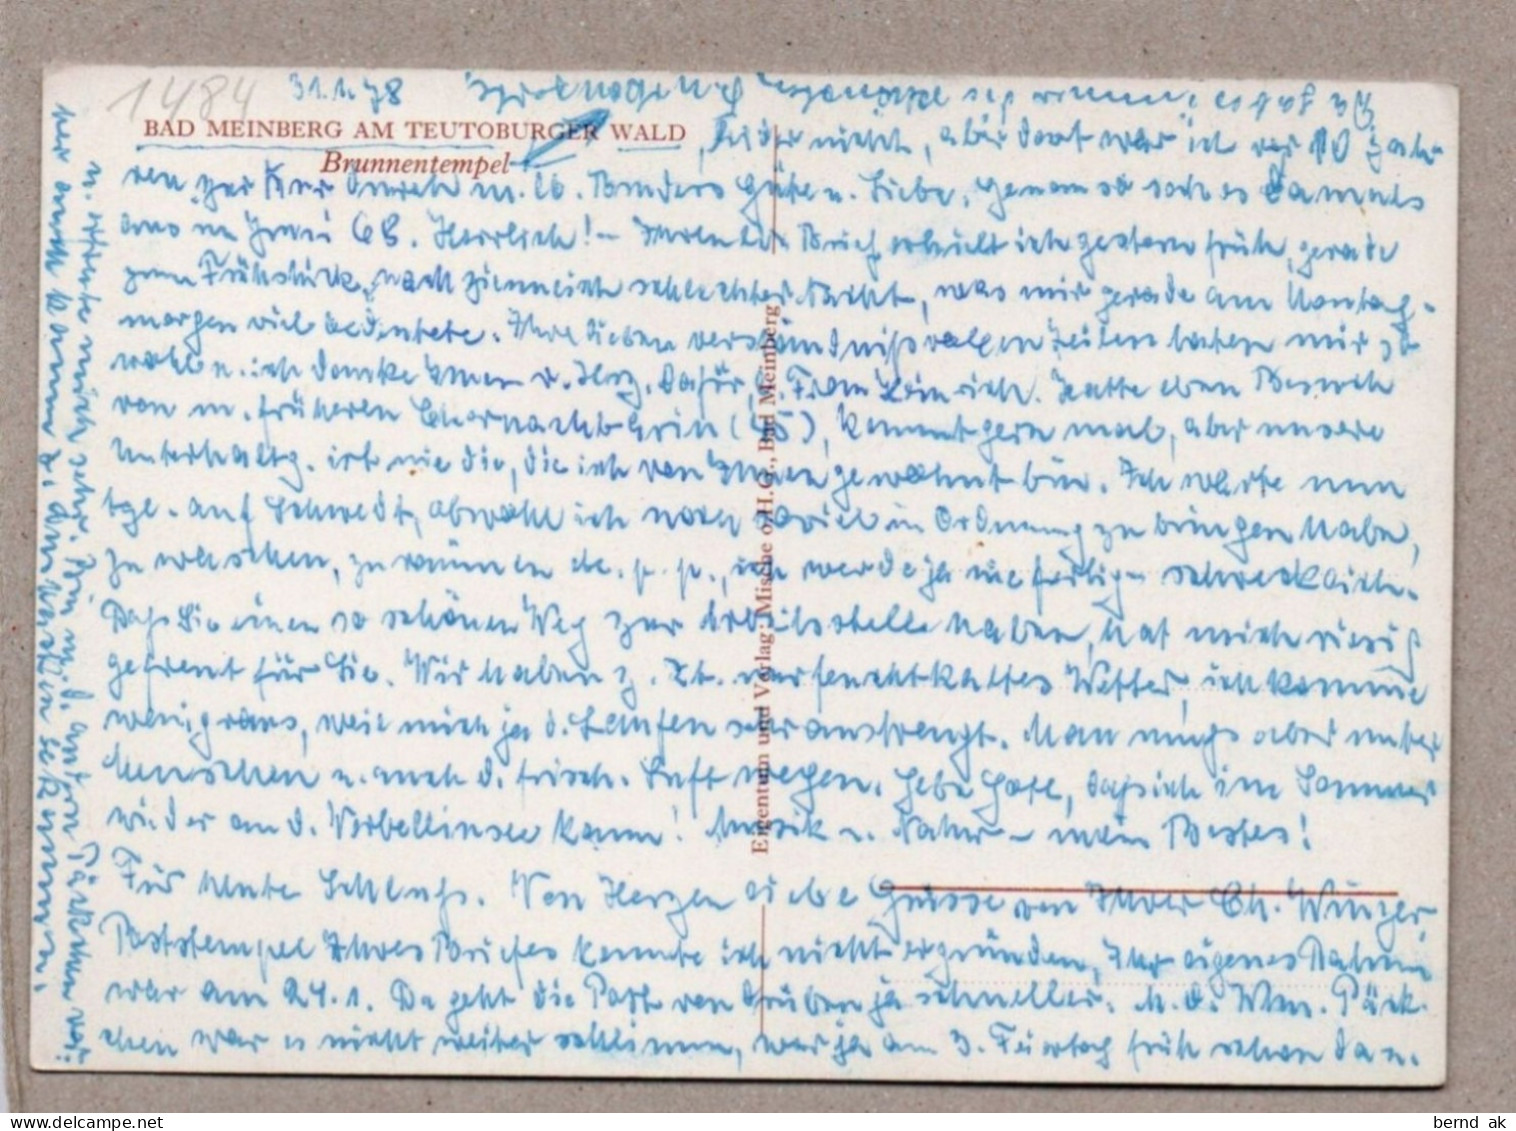 1484
31.1.78
BAD MEINBERG AM TEUTOBURGER WALD
Brunnentempel
, leider nicht, aber dort war ich vor 10 Jah-
ren zur Kur durch m. lb. Bruders Güte u. Liebe, genau so sah es damals
aus im Juni 68. Herrlich! – Ihren lb. Brief erhielt ich gestern früh, gerade
zum Frühstück, nach ziemlich schlechter Nacht, was mir gerade am Montag-
morgen viel bedeutete. Ihre lieben verständnisvollen Zeilen taten mir so
wohl u. ich danke Ihnen v. Herz. dafür, Frau Heinrich. Hatte eben Besuch
von m. früheren Chornachbarin (45), kommt gern mal, aber unsere
Unterhaltg. ist nie die, die ich von Ihnen gewohnt bin. Ich warte nun
tgl. auf Schwedt, obwohl ich noch soviel in Ordnung zu bringen habe,
zu waschen, zu räumen etc. p. p., ich werde ja nie fertig, schrecklich.
Daß Sie einen so schönen Weg zur Arbeitsstelle haben, hat mich riesig
gefreut für Sie. Wir haben z. Zt. nur feuchtkaltes Wetter, ich komme
wenig raus, weil mich ja d. Laufen sehr anstrengt. Man muß aber unter
Menschen u. auch d. frisch. Luft wegen. Gebe Gott, daß ich im Sommer
wieder an d. Werbellinsee kann! Musik u. Natur – mein Bestes!
Für heute Schluß. Von Herzen liebe Grüsse von Ihrer Ch. Winzer
Poststempel Ihres Briefes konnte ich nicht ergründen, Ihr eigenes Datum
war am 24.1. Da geht die Post von drüben ja schneller. M. d. Whn. Päck-
chen war es nicht weiter schlimm, war ja am 3. Feiertag früh schon da u.
u. freute mich sehr. Bin m. d. andern Päckchen vor-
her auch kaum z. auspacken gekommen.
Eigentum und Verlag: Mische o.H.G., Bad Meinberg
bernd ak